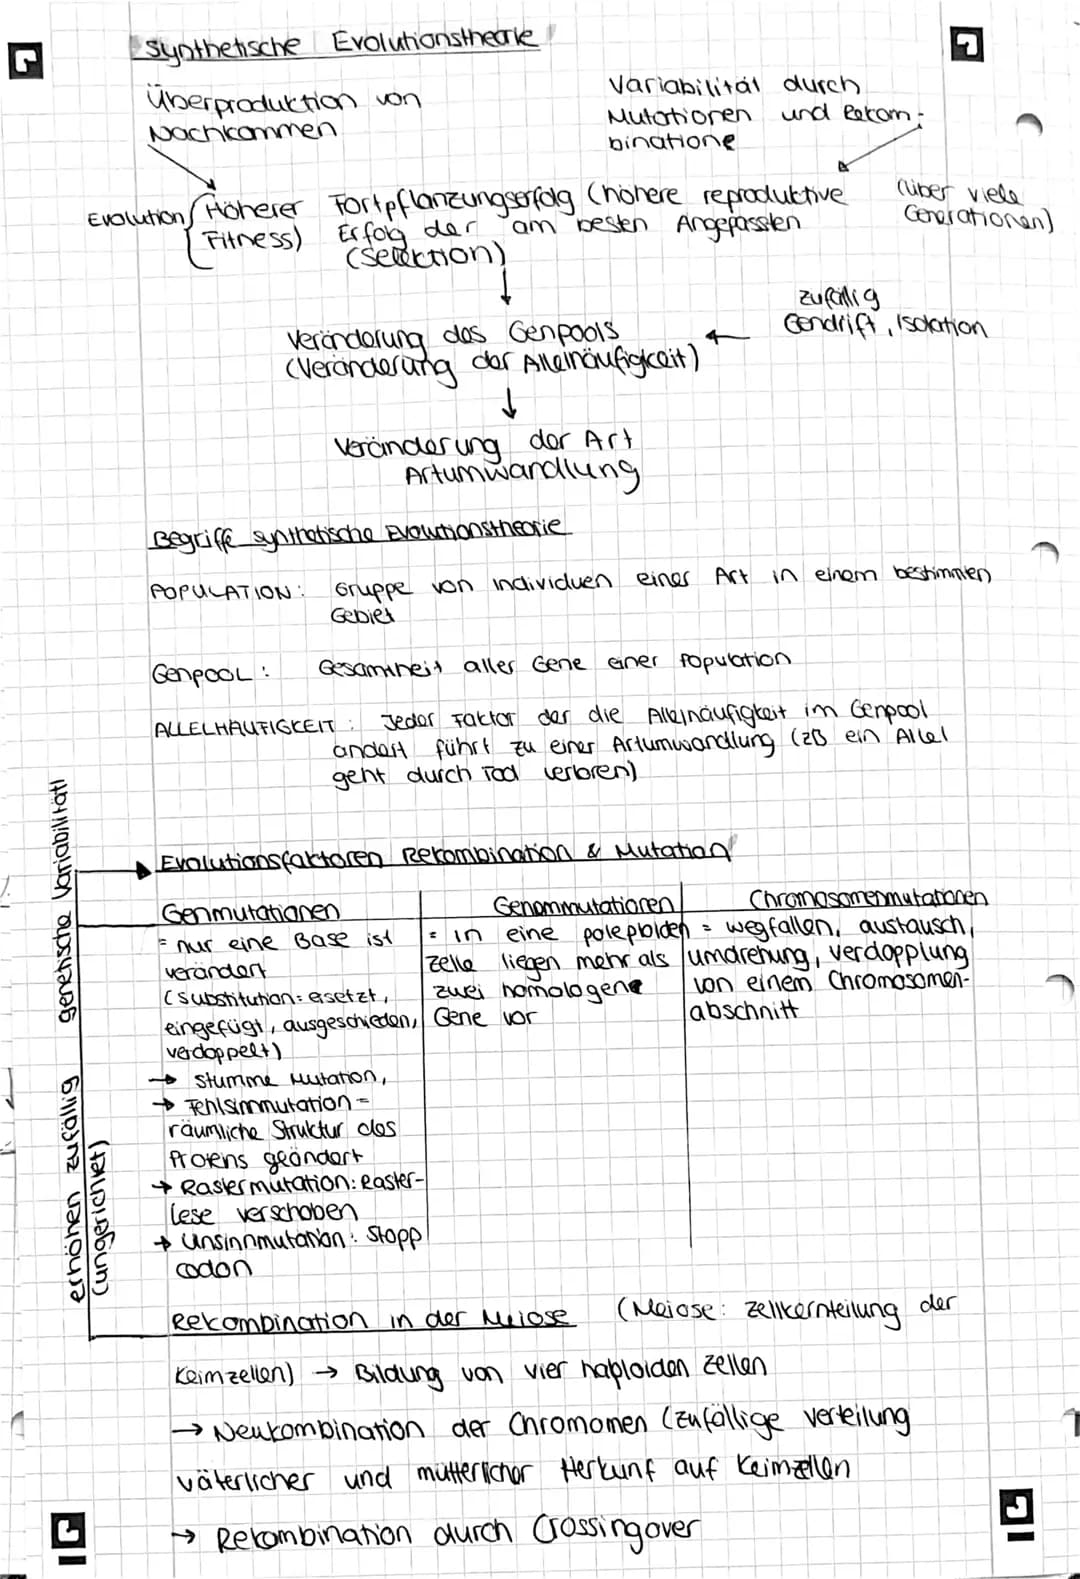 Synthetische Evolutionstheorie
Überproduktion von
Nachkommen
Variabilität durch
Mutationen und Rekom-
binatione
Evolution
Höherer Fortpflanzungserfolg (höhere reproduktive
Fitness) Erfolg der am besten Angepassten
(Selektion)
(über viele
Generationen)
zufällig
Gendrift, Isolation
Veränderung des Genpools
(Veränderung der Allelhäufigkeit)
Veränderung der Art
Artumwandlung
Begriffe synthetische Evolutionstheorie
POPULATION: Gruppe von Individuen einer Art in einem bestimmten
Gebiet
GENPOOL: Gesamtheit aller Gene einer Population
ALLELHÄUFIGKEIT: Jeder Faktor der die Allelhäufigkeit im Genpool
ändert führt zu einer Artumwandlung (zB ein Allel
geht durch Tod verloren)
genetische Variabilität!
erhöhen zufällig
(ungerichtet)
→ Evolutionsfaktoren Rekombination & Mutation
Genmutationen
= nur eine Base ist
verändert
(Substitution: ersetzt,
eingefügt, ausgeschieden,
verdoppelt)
→ Stumme Mutation,
→ Fehlsinnmutation =
räumliche Struktur des
Proteins geändert
→ Rastermutation: Raster-
lese verschoben
→ Unsinnmutation: Stopp
codon
Genommutationen
= in eine poleploiden
Zelle liegen mehr als
zwei homologene
Gene vor
Chromosomenmutationen
= wegfallen, austausch,
umdrehung, verdopplung
von einem Chromosomen-
abschnitt
Rekombination in der Meiose (Meiose: Zellkernteilung der
Keimzellen) → Bildung von vier haploiden Zellen
→ Neukombination der Chromomen (zufällige verteilung
väterlicher und mütterlicher Herkunf auf Keimzellen
→ Rekombination durch Crossingover